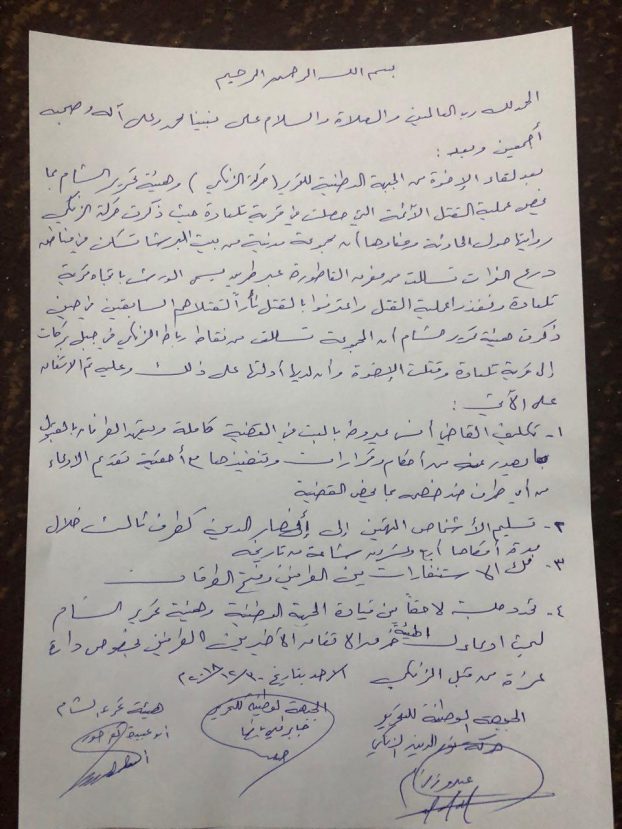 بسم الله الرحمن الرحيم
الحمد لله رب العالمين والصلاة والسلام على نبينا محمد وعلى آله وصحبه
أجمعين وبعد :
بعد لقاء الإخوة من الجبهة الوطنية للتحرير (حركة الزنكي) وهيئة تحرير الشام بما
يخص عملية القتل الآثمة التي حصلت في قرية تلعادة حيث ذكرت حركة الزنكي
روايتها حول الحادثة ومفادها أن مجموعة مدنية من بيت البرشا تسكن في مناطق
درع الفرات تسللت من معبر القاطورة عبر طريق يسمى الورش باتجاه قرية
تلعادة ونفذوا عملية القتل واعترفوا بالقتل ثأراً لقتلاهم السابقين في حين
ذكرت هيئة تحرير الشام أن المجموعة تسللت من نقاط رباط الزنكي في جبل بركات
إلى قرية تلعادة وقتلت الإخوة وأن لديها أدلتها على ذلك وعليه تم الاتفاق
على الآتي :
١- تكليف القاضي أنس عيروط بالبت في القضية كاملة ويتعهد الطرفان بالقبول
بما يصدر عنه من أحكام وقرارات وتنفيذها مع أحقية تقديم الادعاء
من أي طرف ضد خصمه بما يخص القضية
٢- تسليم الأشخاص المتهمين إلى أنصار الدين كطرف ثالث خلال
مدة أقصاها أربع وعشرين ساعة من تاريخه
٣- فك الاستنفارات بين الطرفين وفتح الطرقات
٤- تحدد جلسة لاحقاً من قيادة الجبهة الوطنية وهيئة تحرير الشام
لبحث ادعاءات الهيئة خرق الاتفاق الأخير بين الطرفين بخصوص دارة
عزة من قبل الزنكي الاحد بتاريخ ٢٠١٨/١٢/٣٠ م
الجبهة الوطنية للتحرير
حركة نور الدين الزنكي
الجبهة الوطنية للتحرير
هيئة تحرير الشام